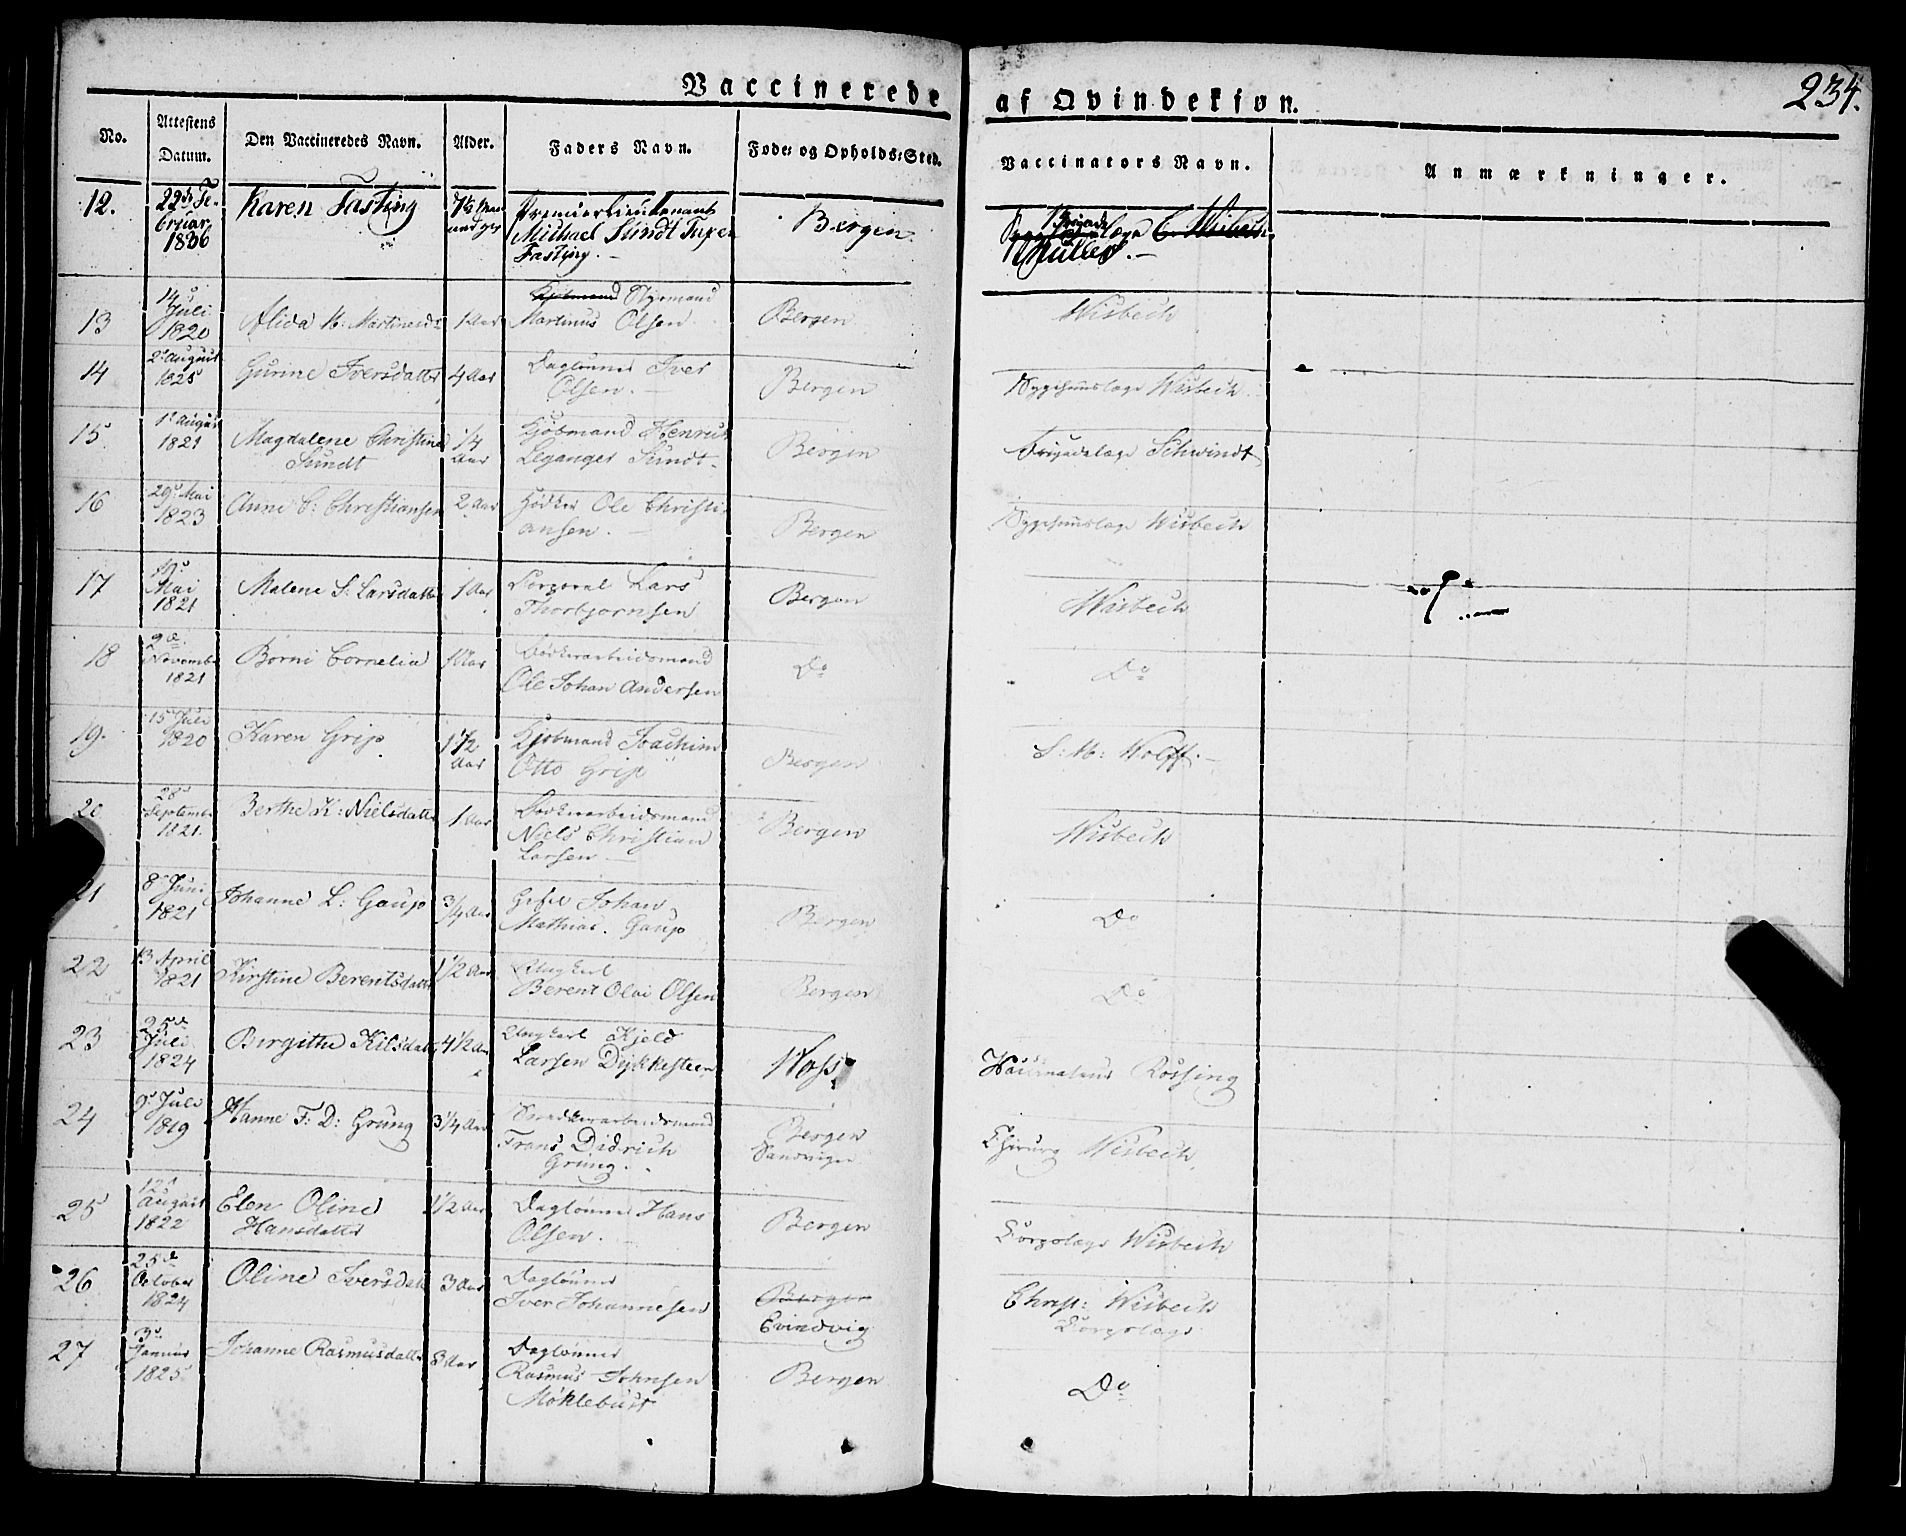 Vaccinerede af Qvindekjøn.
234.
No.
Attestens Datum.
Den Vaccineredes Navn.
Alder.
Faders Navn.
Føde- og Opholds-Sted.
Vaccinators Navn.
Anmærkninger.
12.
22de Februar 1836
Karen Fasting
Premierlieutenant
Michael Sundt Tuxen
Fasting.
Bergen.
Brigadelæge C. Wisbech
Müller.
13
14d Juli 1820
Alida M. Martinusd
1 Aar
Kjøbmand Styrmand
Martinus Olsen
Bergen
Wisbech
14
2d August 1825
Gurine Iversdatter
4 Aar
Daglønner Iver
Olsen.
Bergen
Sygehuuslæge Wisbech
15
1d August 1821
Magdalene Christine
Sundt
1/4 Aar
Kjøbmand Henrik
Leganger Sundt
Bergen
Brigadelæge Schwindt
16
29d Mai 1823
Anne C: Christiansen
2 Aar
Bødker Ole Christi-
ansen.
Bergen
Sygehuuslæge Wisbech
17
Mai 1821
Malene S. Larsdatter
1 Aar
Corporal Lars
Thorbjørnsen
Bergen
Wisbech
18
9de November 1821
Børni Cornelia
1 Aar
Bødkerarbeidsmand
Ole Johan Andersen
Do
Do
19.
15 Juli 1820
Karen Grip
1 1/2 Aar
Kjøbmand Joachim
Otto Grip
Bergen
S: M: Wolff.
20
28d September 1821.
Berthe K: Nielsdatter
1 Aar
Bødkerarbeidsmand
Niels Christian
Larsen
Bergen
Wisbech
21
8d Juni 1821
Johanne L: Gaup
3/4 Aar
Johan
Mathias. Gaup
Bergen
Do
22
13 April 1821
Kirstine Berentsdatter
1 1/2 Aar
Ungkarl
Berent Olai Olsen
Bergen
Do
23
25d Juli 1824
Birgithe Kilsdatter
4 1/2 Aar
Ungkarl Kjeld
Larsen Dykkesteen
Woss
Rossing
24
9d Juli 1819
Hanne F: D: Grung
3 1/4 Aar
Snedkerarbeidsmand
Frans Didrich
Grung.
Bergen
Sandvigen
Chirurg Wisbech
25
12d August 1822
Elen Oline
Hansdatter
1/2 Aar
Daglønner Hans
Olsen.
Bergen
Corpslæge Wisbech
26
25d October 1824
Oline Iversdatt
3 Aar
Daglønner
Iver Johannesen
Bergen
Evindvig
Christ: Wisbech
Corpslæge
27
3d Januar 1825
Johanne Rasmusdatter
8 Aar
Daglønner
Rasmus Johnsen
Møklebust
Bergen
Do